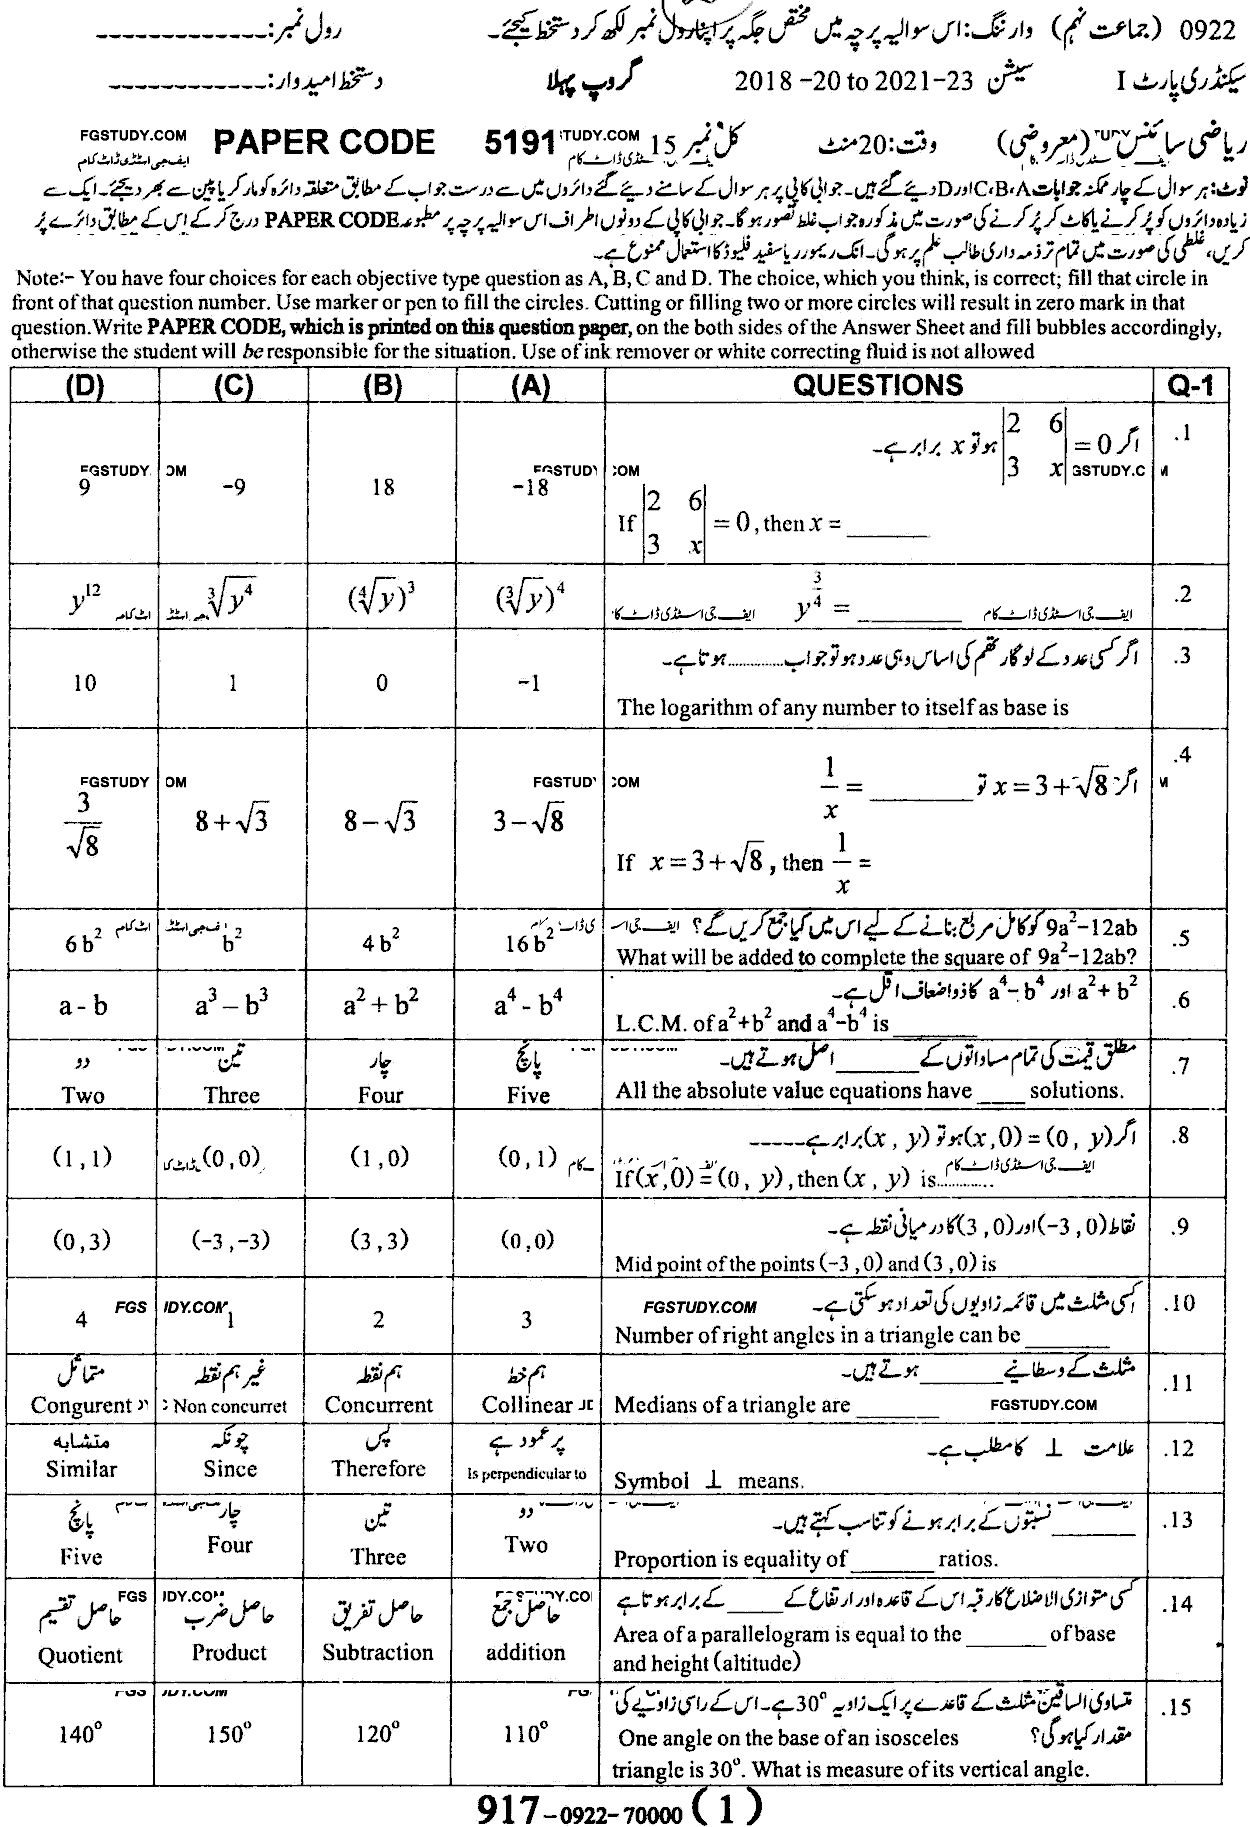 0922 (جماعت نہم) وارننگ: اس سوالیہ پرچہ میں مختص جگہ پر اپنا رول نمبر لکھ کر دستخط کیجئے۔ رول نمبر: -------------
سیکنڈری پارٹ I سیشن 2018 -20 to 2021-23 گروپ پہلا دستخط امیدوار: ------------
ریاضی سائنس (معروضی) وقت: 20 منٹ کل نمبر 15 PAPER CODE 5191 FGSTUDY.COM
نوٹ: ہر سوال کے چار ممکنہ جوابات C،B،A اور D دیئے گئے ہیں۔ جوابی کاپی پر ہر سوال کے سامنے دیئے گئے دائروں میں سے درست جواب کے مطابق متعلقہ دائرہ کو مارکر یا پین سے بھر دیجئے۔ ایک سے
زیادہ دائروں کو پُر کرنے یا کاٹ کر پُر کرنے کی صورت میں مذکورہ جواب غلط تصور ہو گا۔ جوابی کاپی کے دونوں اطراف اس سوالیہ پرچہ پر مطبوعہ PAPER CODE درج کر کے اس کے مطابق دائرے پُر
کریں، غلطی کی صورت میں تمام تر ذمہ داری طالب علم پر ہوگی۔ انک ریموور یا سفید فلیوڈ کا استعمال ممنوع ہے۔
Note:- You have four choices for each objective type question as A, B, C and D. The choice, which you think, is correct; fill that circle in
front of that question number. Use marker or pen to fill the circles. Cutting or filling two or more circles will result in zero mark in that
question. Write PAPER CODE, which is printed on this question paper, on the both sides of the Answer Sheet and fill bubbles accordingly,
otherwise the student will be responsible for the situation. Use of ink remover or white correcting fluid is not allowed
(D) (C) (B) (A) QUESTIONS Q-1
اگر |2 6; 3 x| = 0 ہو تو x برابر ہے۔ .1
9 -9 18 -18
If |2 6; 3 x| = 0, then x = ______
y^12 ∛(y^4) (∜y)^3 (∛y)^4 y^(3/4) = ______ .2
اگر کسی عدد کے لوگارتھم کی اساس وہی عدد ہو تو جواب ............ ہوتا ہے۔ .3
10 1 0 -1
The logarithm of any number to itself as base is
اگر x = 3+√8 تو 1/x = ______ .4
3/√8 8+√3 8-√3 3-√8
If x = 3+√8, then 1/x =
9a²-12ab کو کامل مربع بنانے کے لیے اس میں کیا جمع کریں گے؟ .5
6b² b² 4b² 16b²
What will be added to complete the square of 9a²-12ab?
a²+b² اور a⁴-b⁴ کا ذواضعاف اقل ہے۔ .6
a - b a³ - b³ a² + b² a⁴ - b⁴
L.C.M. of a²+b² and a⁴-b⁴ is ______
مطلق قیمت کی تمام مساواتوں کے ______ اصل ہوتے ہیں۔ .7
دو تین چار پانچ
Two Three Four Five All the absolute value equations have ____ solutions.
اگر (x,0) = (0, y) ہو تو (x , y) برابر ہے ----- .8
(1,1) (0,0) (1,0) (0,1)
If (x,0) = (0, y), then (x , y) is............
نقاط (-3,0) اور (3,0) کا درمیانی نقطہ ہے۔ .9
(0,3) (-3,-3) (3,3) (0,0)
Mid point of the points (-3,0) and (3,0) is
کسی مثلث میں قائمہ زاویوں کی تعداد ہو سکتی ہے۔ .10
FGSTUDY.COM
4 1 2 3
Number of right angles in a triangle can be ______
مثلث کے وسطانیے ______ ہوتے ہیں۔ .11
متماثل غیر ہم نقطہ ہم نقطہ ہم خط
Congurent Non concurret Concurrent Collinear Medians of a triangle are ______ FGSTUDY.COM
علامت ⊥ کا مطلب ہے۔ .12
متشابہ چونکہ پس پر عمود ہے
Similar Since Therefore Is perpendicular to Symbol ⊥ means.
______ نسبتوں کے برابر ہونے کو تناسب کہتے ہیں۔ .13
پانچ چار تین دو
Five Four Three Two Proportion is equality of ______ ratios.
کسی متوازی الاضلاع کا رقبہ اس کے قاعدہ اور ارتفاع کے ____ کے برابر ہوتا ہے .14
حاصل تقسیم حاصل ضرب حاصل تفریق حاصل جمع
Quotient Product Subtraction addition Area of a parallelogram is equal to the ______ of base
and height (altitude)
متساوی الساقین مثلث کے قاعدے پر ایک زاویہ 30° ہے۔ اس کے راسی زاویے کی .15
مقدار کیا ہو گی؟
140° 150° 120° 110° One angle on the base of an isosceles
triangle is 30°. What is measure of its vertical angle.
917-0922-70000 (1)